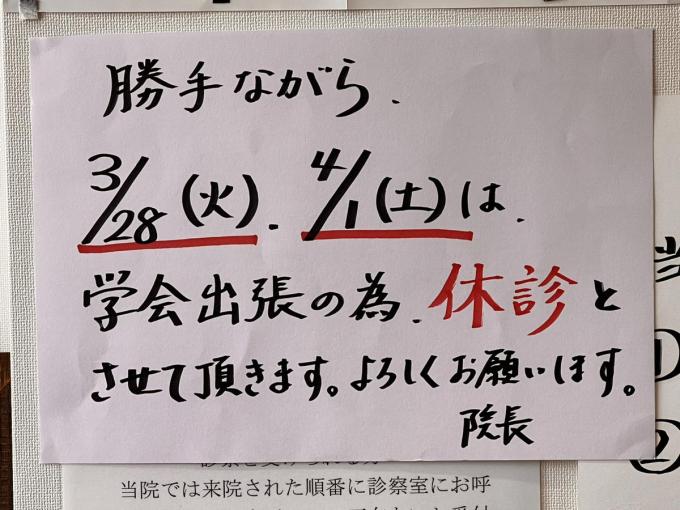 勝手ながら、
3/28(火)、4/1(土)は、
学会出張の為、休診と
させて頂きます。よろしくお願いします。
院長
当院では来院された順番に診察室にお呼
当
①
②